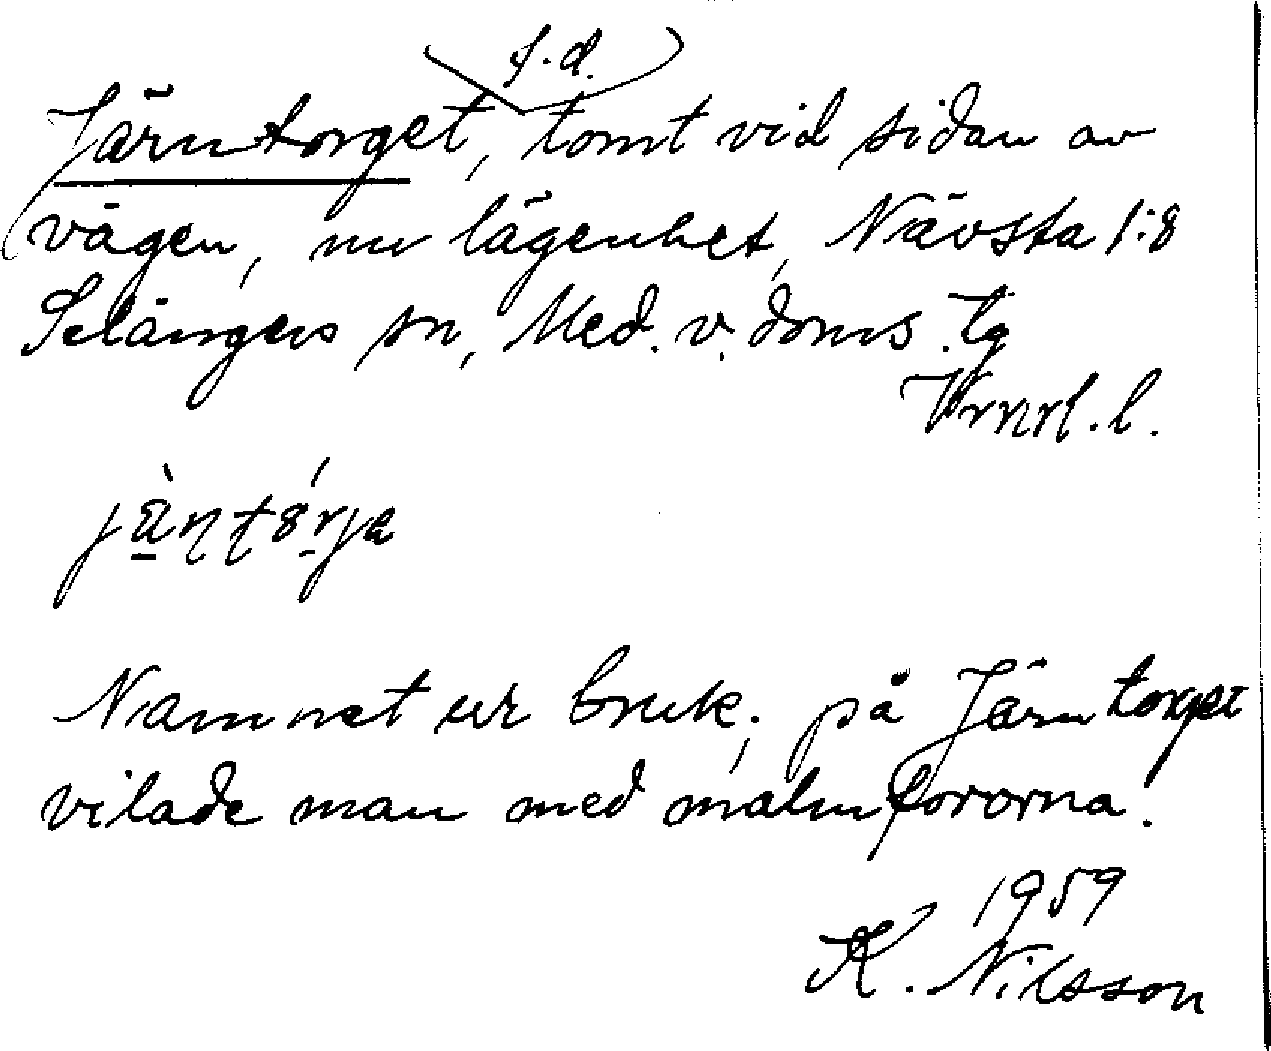 f.d.
Järntorget, tomt vid sidan av
vägen, nu lägenhet, Nävsta 1:8
Selångers sn, Med. v. doms. tg
Vrnrl. l.
Namnet ur bruk; på Järntorget
vilade man med malmfororna.
1959
K. Nilsson